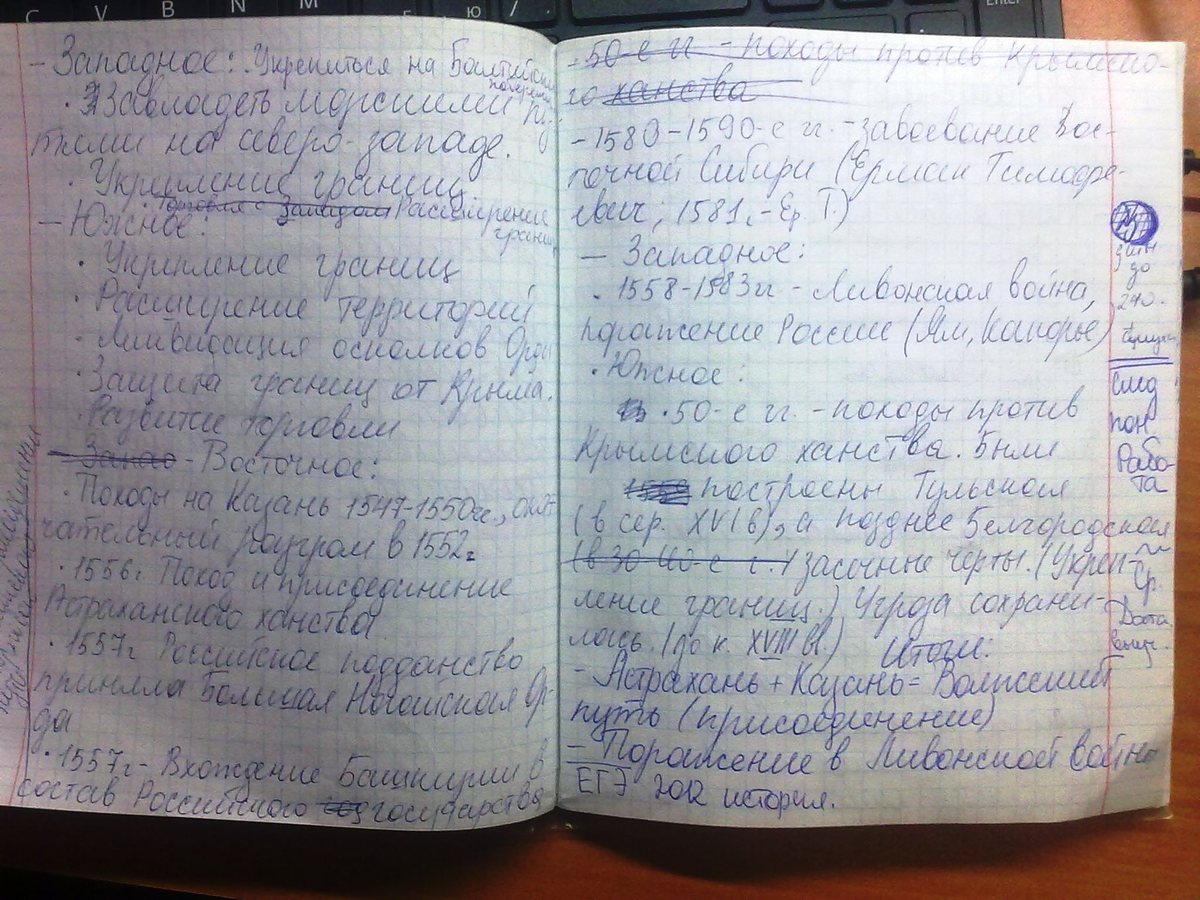 – Западное: Укрепиться на Балтийском
побережье
· Завладеть морскими пу-
тями на северо-западе.
· Укрепление границ
Торговля с Западом Расширение
границ
– Южное:
· Укрепление границ
· Расширение территорий
· Ликвидация осколков Орды
· Защита границ от Крыма.
· Развитие торговли
– Восточное:
· Походы на Казань 1547-1550гг., окон-
чательный разгром в 1552г
· 1556г Поход и присоединение
Астраханского ханства
· 1557г Российское подданство
приняла Большая Ногайская Ор-
да
· 1557г - Вхождение Башкирии в
состав Российского государства
- 50-е гг - походы против Крымско-
го ханства
- 1580-1590-е гг. - завоевание Вос-
точной Сибири (Ермак Тимофе-
евич; 1581. - Ер. Т.)
– Западное:
· 1558-1583гг - Ливонская война,
поражение России (Ям, Копорье)
· Южное:
· 50-е гг. - походы против
Крымского ханства. Были
построены Тульская
(в сер. XVI в), а позднее Белгородская
(в 30-40-е г.) засечные черты. (Укреп-
ление границ.) Угроза сохрани-
лась. (до к. XVIII в.) Итоги:
- Астрахань + Казань = Волжский
путь (присоединение)
- Поражение в Ливонской войне
ЕГЭ 2012 история.
до
240.
След
пон
Рабо-
та
Ср.